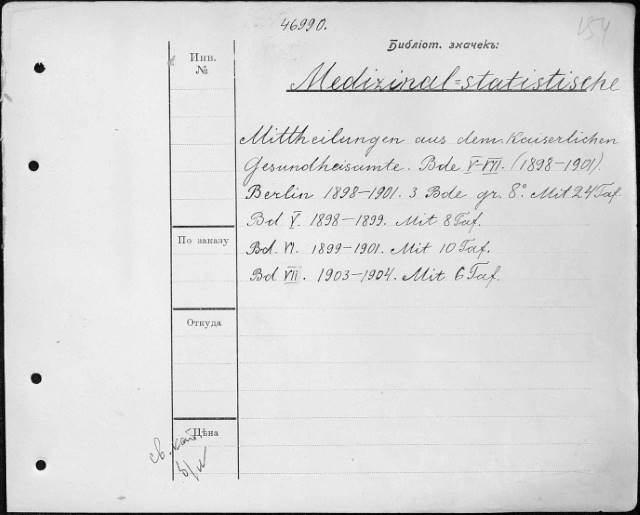 46990.
154
Библіот. значекъ:
Инв.
№
Medizinal-statistische
Mittheilungen aus dem Kaiserlichen
Gesundheisamte. Bde V-VII. (1898-1901).
Berlin 1898-1901. 3 Bde gr. 8°. Mit 24 Taf.
Bd V. 1898-1899. Mit 8 Taf.
По заказу
Bd. VI. 1899-1901. Mit 10 Taf.
Bd VII. 1903-1904. Mit 6 Taf.
Откуда
Цѣна
св.